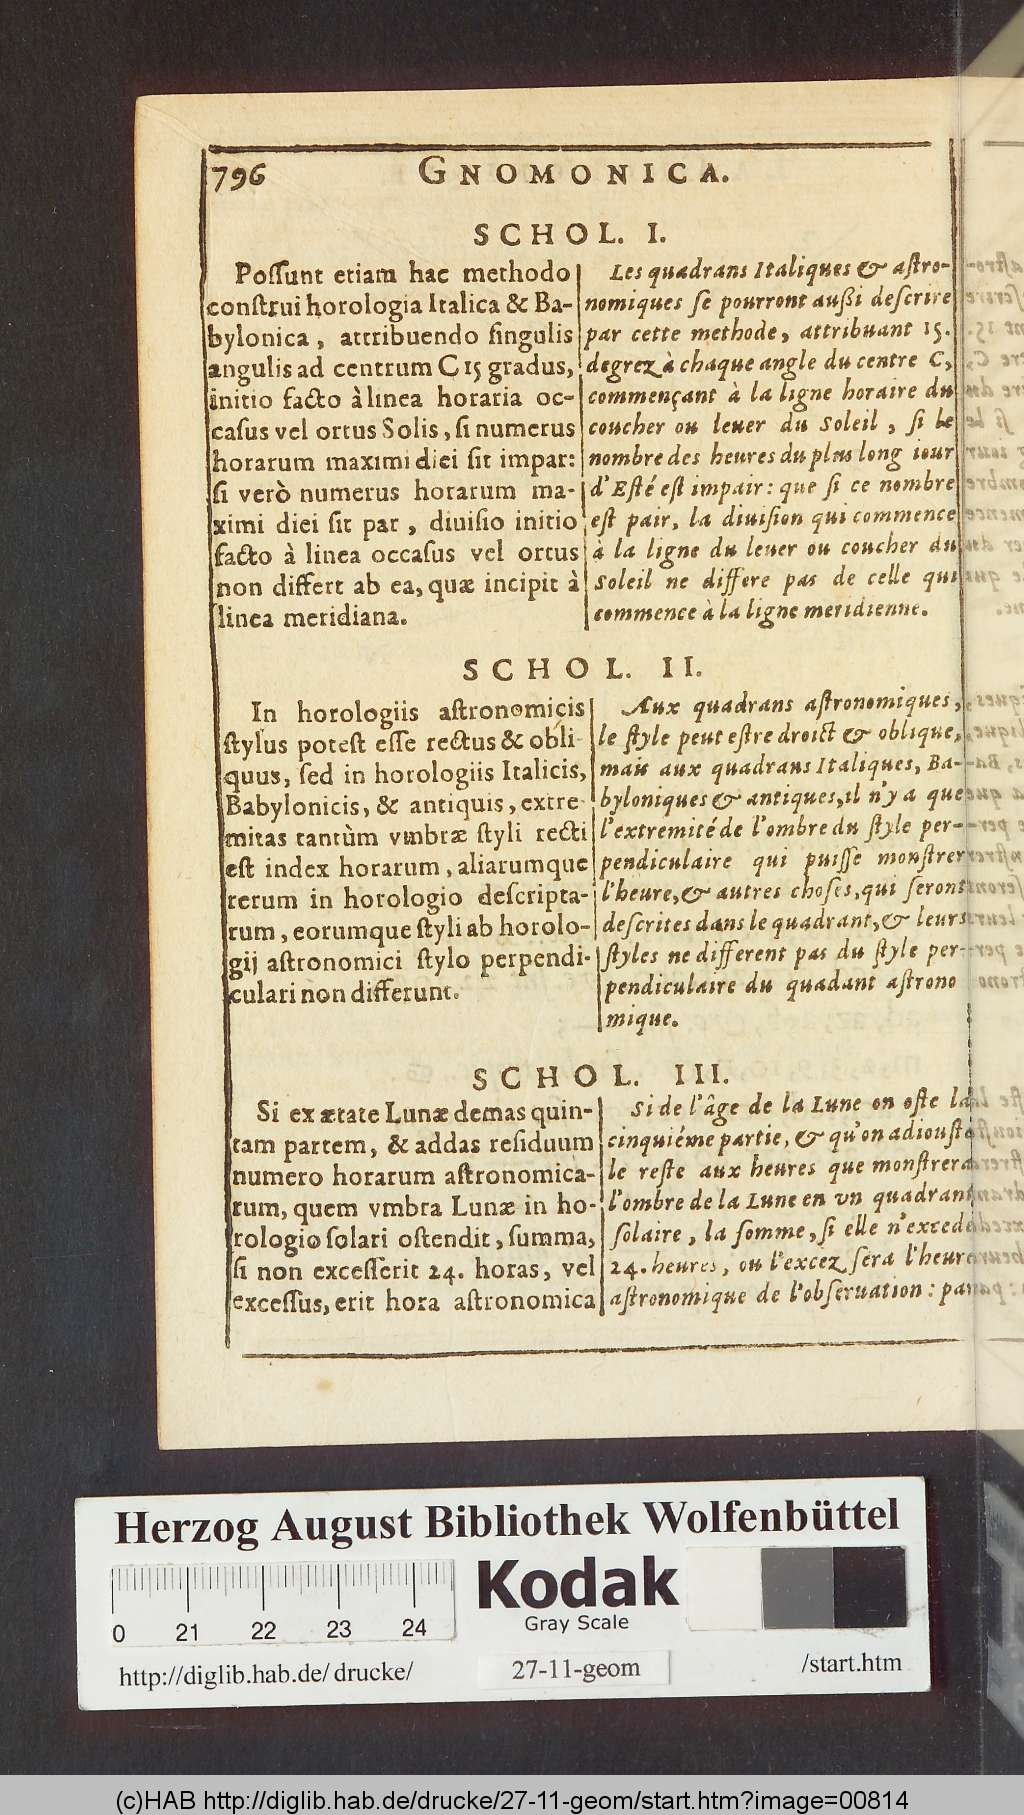 796 GNOMONICA.
SCHOL. I.
Possunt etiam hac methodo
construi horologia Italica & Ba-
bylonica, attribuendo singulis
angulis ad centrum C 15 gradus,
initio facto à linea horaria oc-
casus vel ortus Solis, si numerus
horarum maximi diei sit impar:
si verò numerus horarum ma-
ximi diei sit par, diuisio initio
facto à linea occasus vel ortus
non differt ab ea, quæ incipit à
linea meridiana.
Les quadrans Italiques & astro-
nomiques se pourront außi descrire
par cette methode, attribuant 15.
degrez à chaque angle du centre C,
commençant à la ligne horaire du
coucher ou leuer du Soleil, si le
nombre des heures du plus long iour
d'Esté est impair: que si ce nombre
est pair, la diuision qui commence
à la ligne du leuer ou coucher du
Soleil ne differe pas de celle qui
commence à la ligne meridienne.
SCHOL. II.
In horologiis astronomicis
stylus potest esse rectus & obli-
quus, sed in horologiis Italicis,
Babylonicis, & antiquis, extre-
mitas tantùm vmbræ styli recti
est index horarum, aliarumque
rerum in horologio descripta-
rum, eorumque styli ab horolo-
gij astronomici stylo perpendi-
culari non differunt.
Aux quadrans astronomiques,
le style peut estre droict & oblique,
mais aux quadrans Italiques, Ba-
byloniques & antiques, il n'y a que
l'extremité de l'ombre du style per-
pendiculaire qui puisse monstrer
l'heure, & autres choses, qui seront
descrites dans le quadrant, & leurs
styles ne different pas du style per-
pendiculaire du quadant astrono
mique.
SCHOL. III.
Si ex ætate Lunæ demas quin-
tam partem, & addas residuum
numero horarum astronomica-
rum, quem vmbra Lunæ in ho-
rologio solari ostendit, summa,
si non excesserit 24. horas, vel
excessus, erit hora astronomica
Si de l'âge de la Lune on oste la
cinquiéme partie, & qu'on adiouste
le reste aux heures que monstrera
l'ombre de la Lune en vn quadrant
solaire, la somme, si elle n'excede
24. heures, ou l'excez sera l'heure
astronomique de l'obseruation: par
Herzog August Bibliothek Wolfenbüttel
Kodak
Gray Scale
0 21 22 23 24
http://diglib.hab.de/drucke/ 27-11-geom /start.htm
(c)HAB http://diglib.hab.de/drucke/27-11-geom/start.htm?image=00814